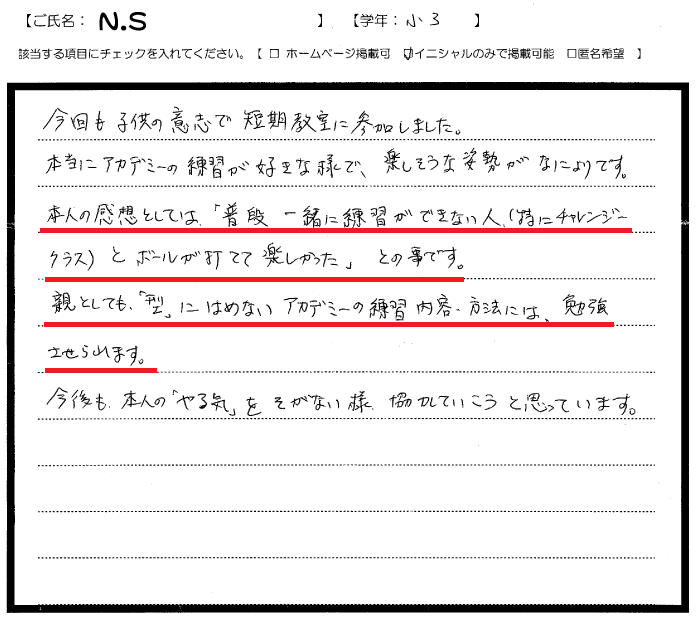 【ご氏名： N.S 】 【学年： 小3 】
該当する項目にチェックを入れてください。【 □ ホームページ掲載可 ☑イニシャルのみで掲載可能 □匿名希望 】
今回も子供の意志で短期教室に参加しました。
本当にアカデミーの練習が好きな様で、楽しそうな姿勢がなによりです。
本人の感想としては、「普段 一緒に練習ができない人、(特にチャレンジー
クラス) と ボールが打てて楽しかった」 との事です。
親としても、「型」にはめないアカデミーの練習内容・方法には、勉強
させられます。
今後も、本人の「やる気」をそがない様、協力していこうと思っています。